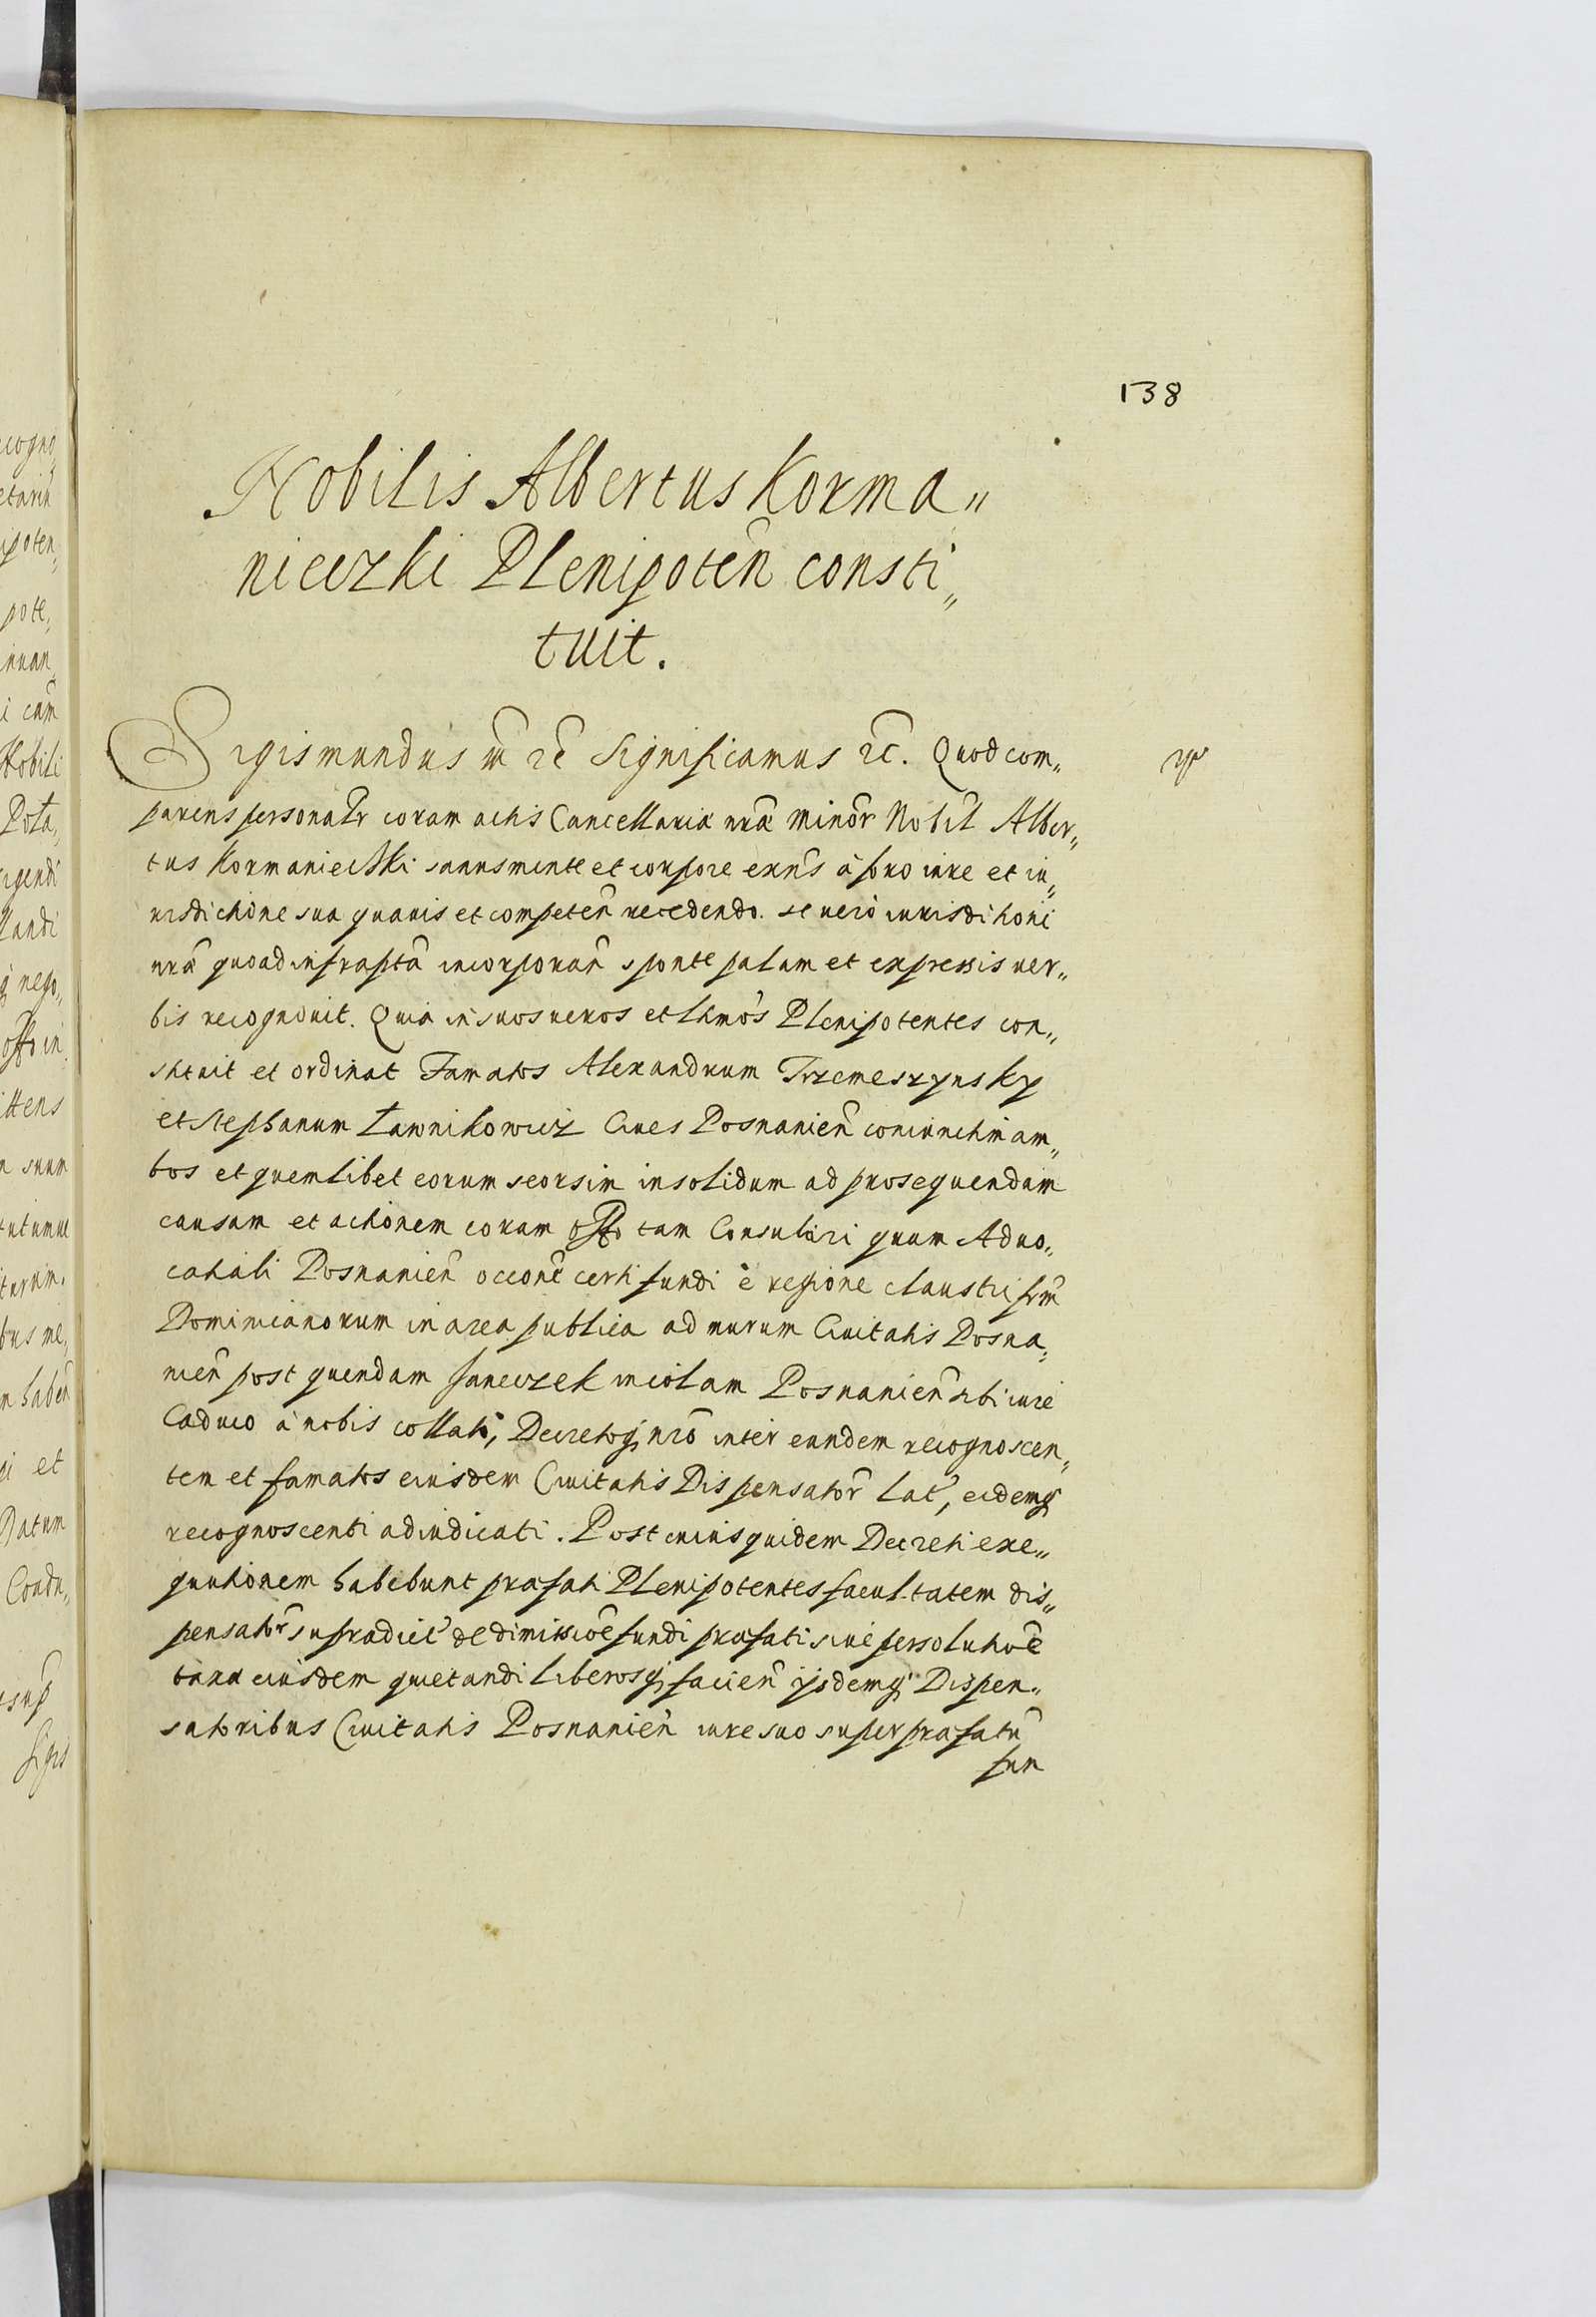 138
Nobilis Albertus Korma„
nieczki Plenipoten̄ consti„
tuit.
Sigismundus etc Significamus etc. Quod com„
parens personalr coram actis Cancellariæ nr̃æ minor̃ Nobil Alber„
tus Kormanieczki sanus mente et corpore exñs à foro iure et iu„
risdictione sua quauis et competeñ recedendo. se vero iurisdictioni
nr̃æ quoad infrasc̃pta incorporañ sponte palam et expressis ver„
bis recognouit. Quia in suos veros et ltimos Plenipotentes con„
stituit et ordinat Famatos Alexandrum Trzemeszynsky
et Stephanum Ławnikowicz Ciues Posnanieñ coniunctim am„
bos et quemlibet eorum seorsim insolidum ad prosequendam
causam et actionem coram offo tam Consulari quam Aduo„
catiali Posnanieñ occõne certi fundi è regione claustri frm̃
Dominicanorum in area publica ad murum Ciuitatis Posna„
nieñ post quendam Janeczek incolam Posnanieñ sibi iure
Caduco à nobis collati, Decretoq; nr̃o inter eundem recognoscen„
tem et famatos eiusdem Ciuitatis Dispensator̃ lat̃, eidemq;
recognoscenti adiudicati. Post cuius quidem Decreti exe„
quutionem habebunt præfati Plenipotentes facultatem dis„
pensator̃ supradict̃ de dimissiõe fundi præfati siue persolutiõe
taxæ eiusdem quietandi liberosq; facieñ ijsdemq; Dispen„
satoribus Ciuitatis Posnanieñ iure suo super præfatũ
fun